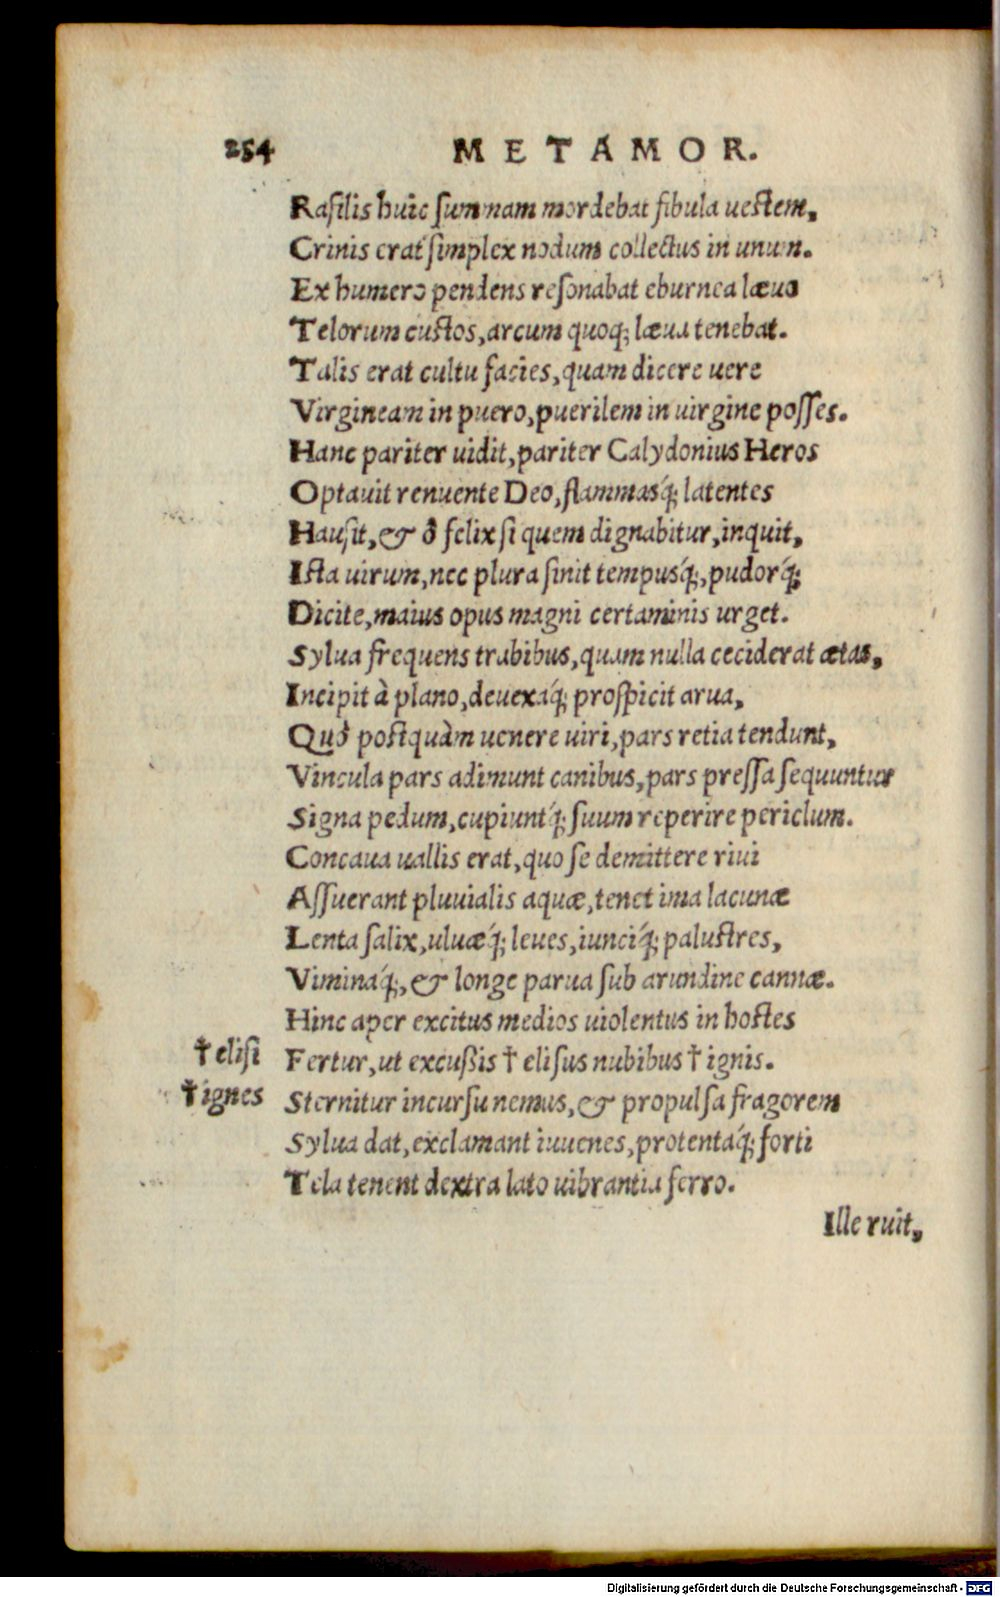 254 METAMOR.
Raſilis huic ſummam mordebat fibula ueſtem,
Crinis erat ſimplex nodum collectus in unum.
Ex humero pendens reſonabat eburnea læuo
Telorum cuſtos, arcum quoq; læua tenebat.
Talis erat cultu facies, quam dicere uere
Virgineam in puero, puerilem in uirgine poſſes.
Hanc pariter uidit, pariter Calydonius Heros
Optauit renuente Deo, flammasq́; latentes
Hauſit, & ô felix ſi quem dignabitur, inquit,
Iſta uirum, nec plura ſinit tempusq́;, pudorq́;
Dicite, maius opus magni certaminis urget.
Sylua frequens trabibus, quam nulla ceciderat ætas,
Incipit à plano, deuexaq́; proſpicit arua,
Quò poſtquàm uenere uiri, pars retia tendunt,
Vincula pars adimunt canibus, pars preſſa ſequuntur
Signa pedum, cupiuntq́; ſuum reperire periclum.
Concaua uallis erat, quo ſe demittere riui
Aſſuerant pluuialis aquæ, tenet ima lacunæ
Lenta ſalix, uluæq́; leues, iunciq́; paluſtres,
Viminaq́;, & longe parua ſub arundine cannæ.
Hinc aper excitus medios uiolentus in hoſtes
† eliſi Fertur, ut excuſsis † eliſus nubibus † ignis.
† ignes Sternitur incurſu nemus, & propulſa fragorem
Sylua dat, exclamant iuuenes, protentaq́; forti
Tela tenent dextra lato uibrantia ferro.
Ille ruit,
Digitalisierung gefördert durch die Deutsche Forschungsgemeinschaft - DFG